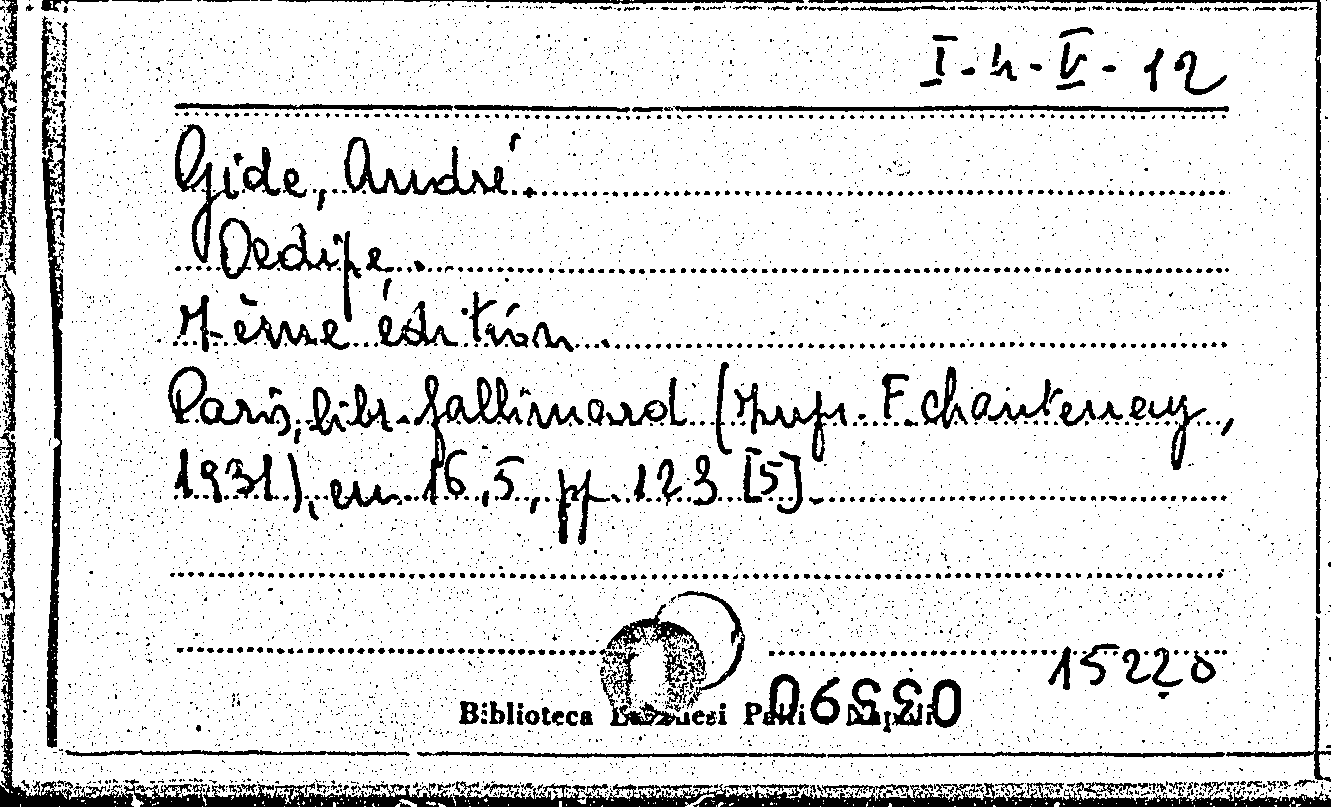 I-h-V-12
Gide, André.
Oedipe.
7ème édition.
Paris, libr. Gallimard (Impr. F. Chantenay,
1931), cm 16,5, pp. 123 [5].
15220
Biblioteca Napoli